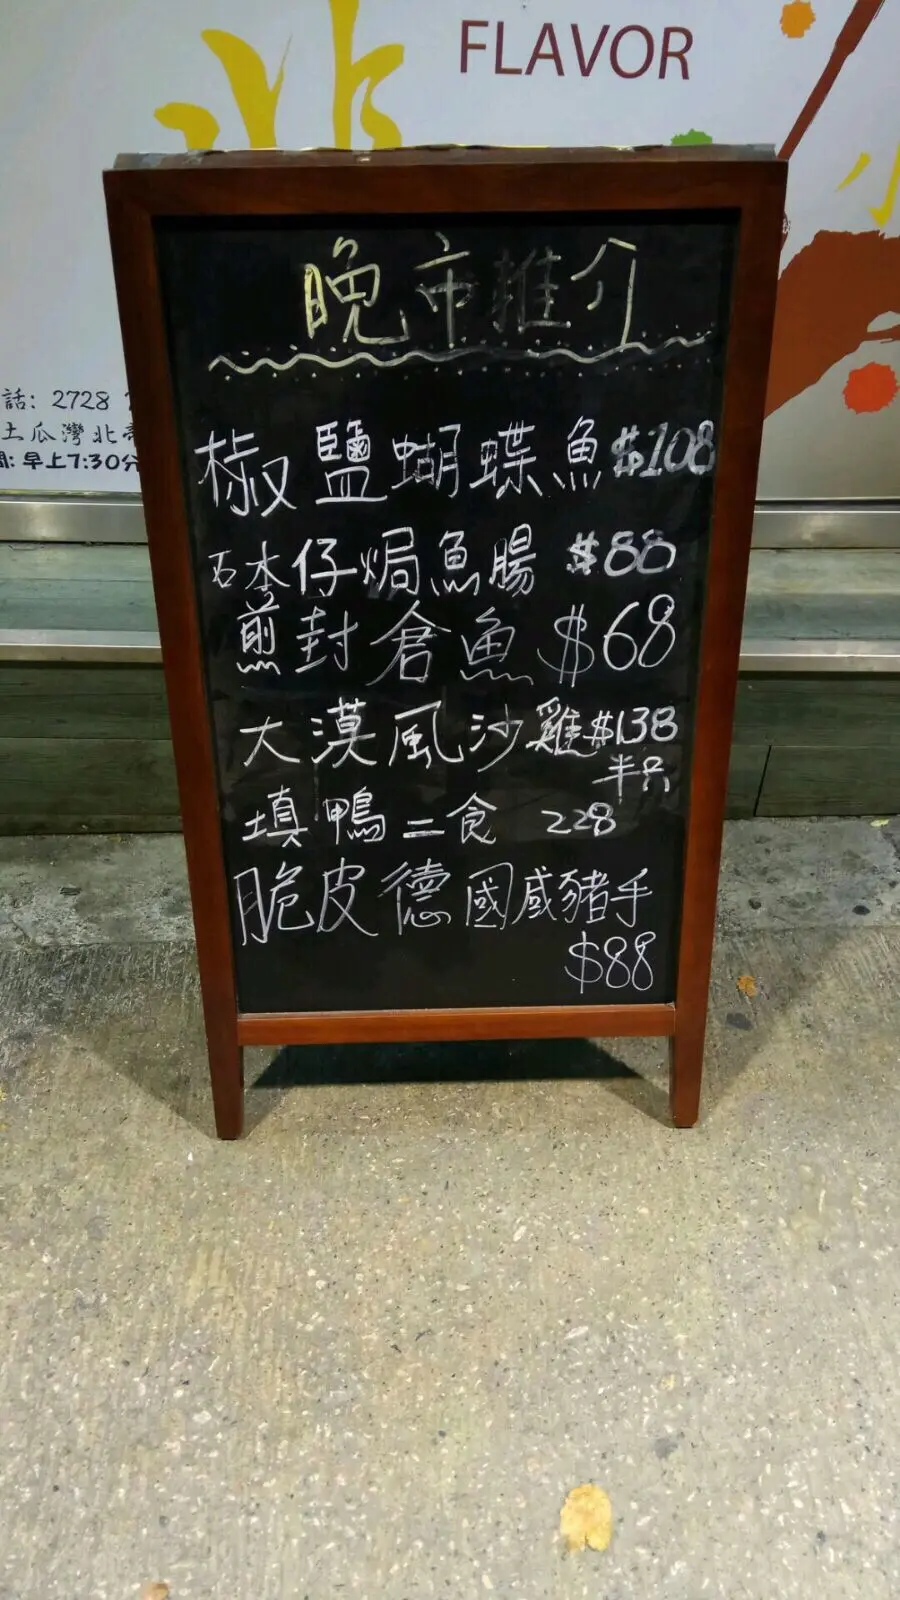 FLAVOR
話: 2728
土瓜灣北帝
間: 早上7:30分
晚市推介
椒鹽蝴蝶魚$108
砵仔焗魚腸 $88
煎封倉魚 $68
大漠風沙雞$138
半只
填鴨二食 228
脆皮德國咸豬手
$88